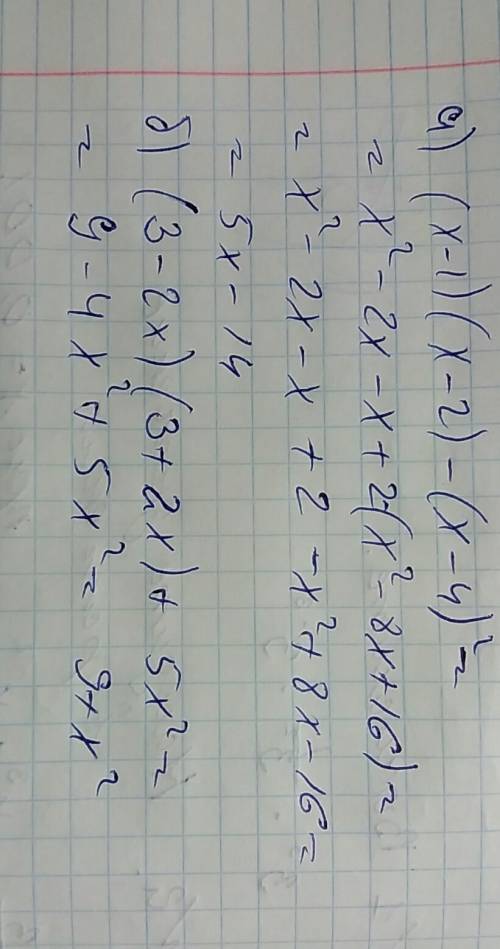 а) (x-1)(x-2)-(x-4)²=
= x²-2x-x+2-(x²-8x+16)=
= x²-2x-x+2-x²+8x-16=
= 5x-14
б) (3-2x)(3+2x)+5x²=
= 9-4x²+5x²= 9+x²